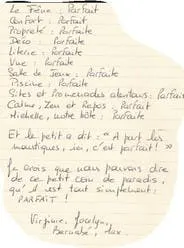 Le Foue : Parfait
Confort : Parfait
Propreté : Parfaite
Déco : Parfaite
Literie : Parfaite
Vue : Parfaite
Salle de Jeux : Parfaite
Piscine : Parfaite
Sites et Promenades alentours : Parfait
Calme, Zen et Repos : Parfait
Michelle, notre hôte : Parfaite
Et le petit a dit : "A part les
moustiques, ici, c'est parfait ! "
Je crois que nous pouvons dire
de ce petit coin de paradis,
qu'il est tout simplement :
PARFAIT !
Virginie, Jocelyn,
Barnabé, Max.